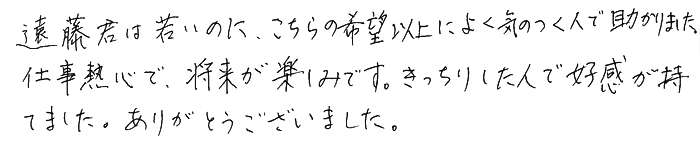 遠藤君は若いのに、こちらの希望以上によく気のつく人で助かりました。
仕事熱心で、将来が楽しみです。きっちりした人で好感が持
てました。ありがとうございました。